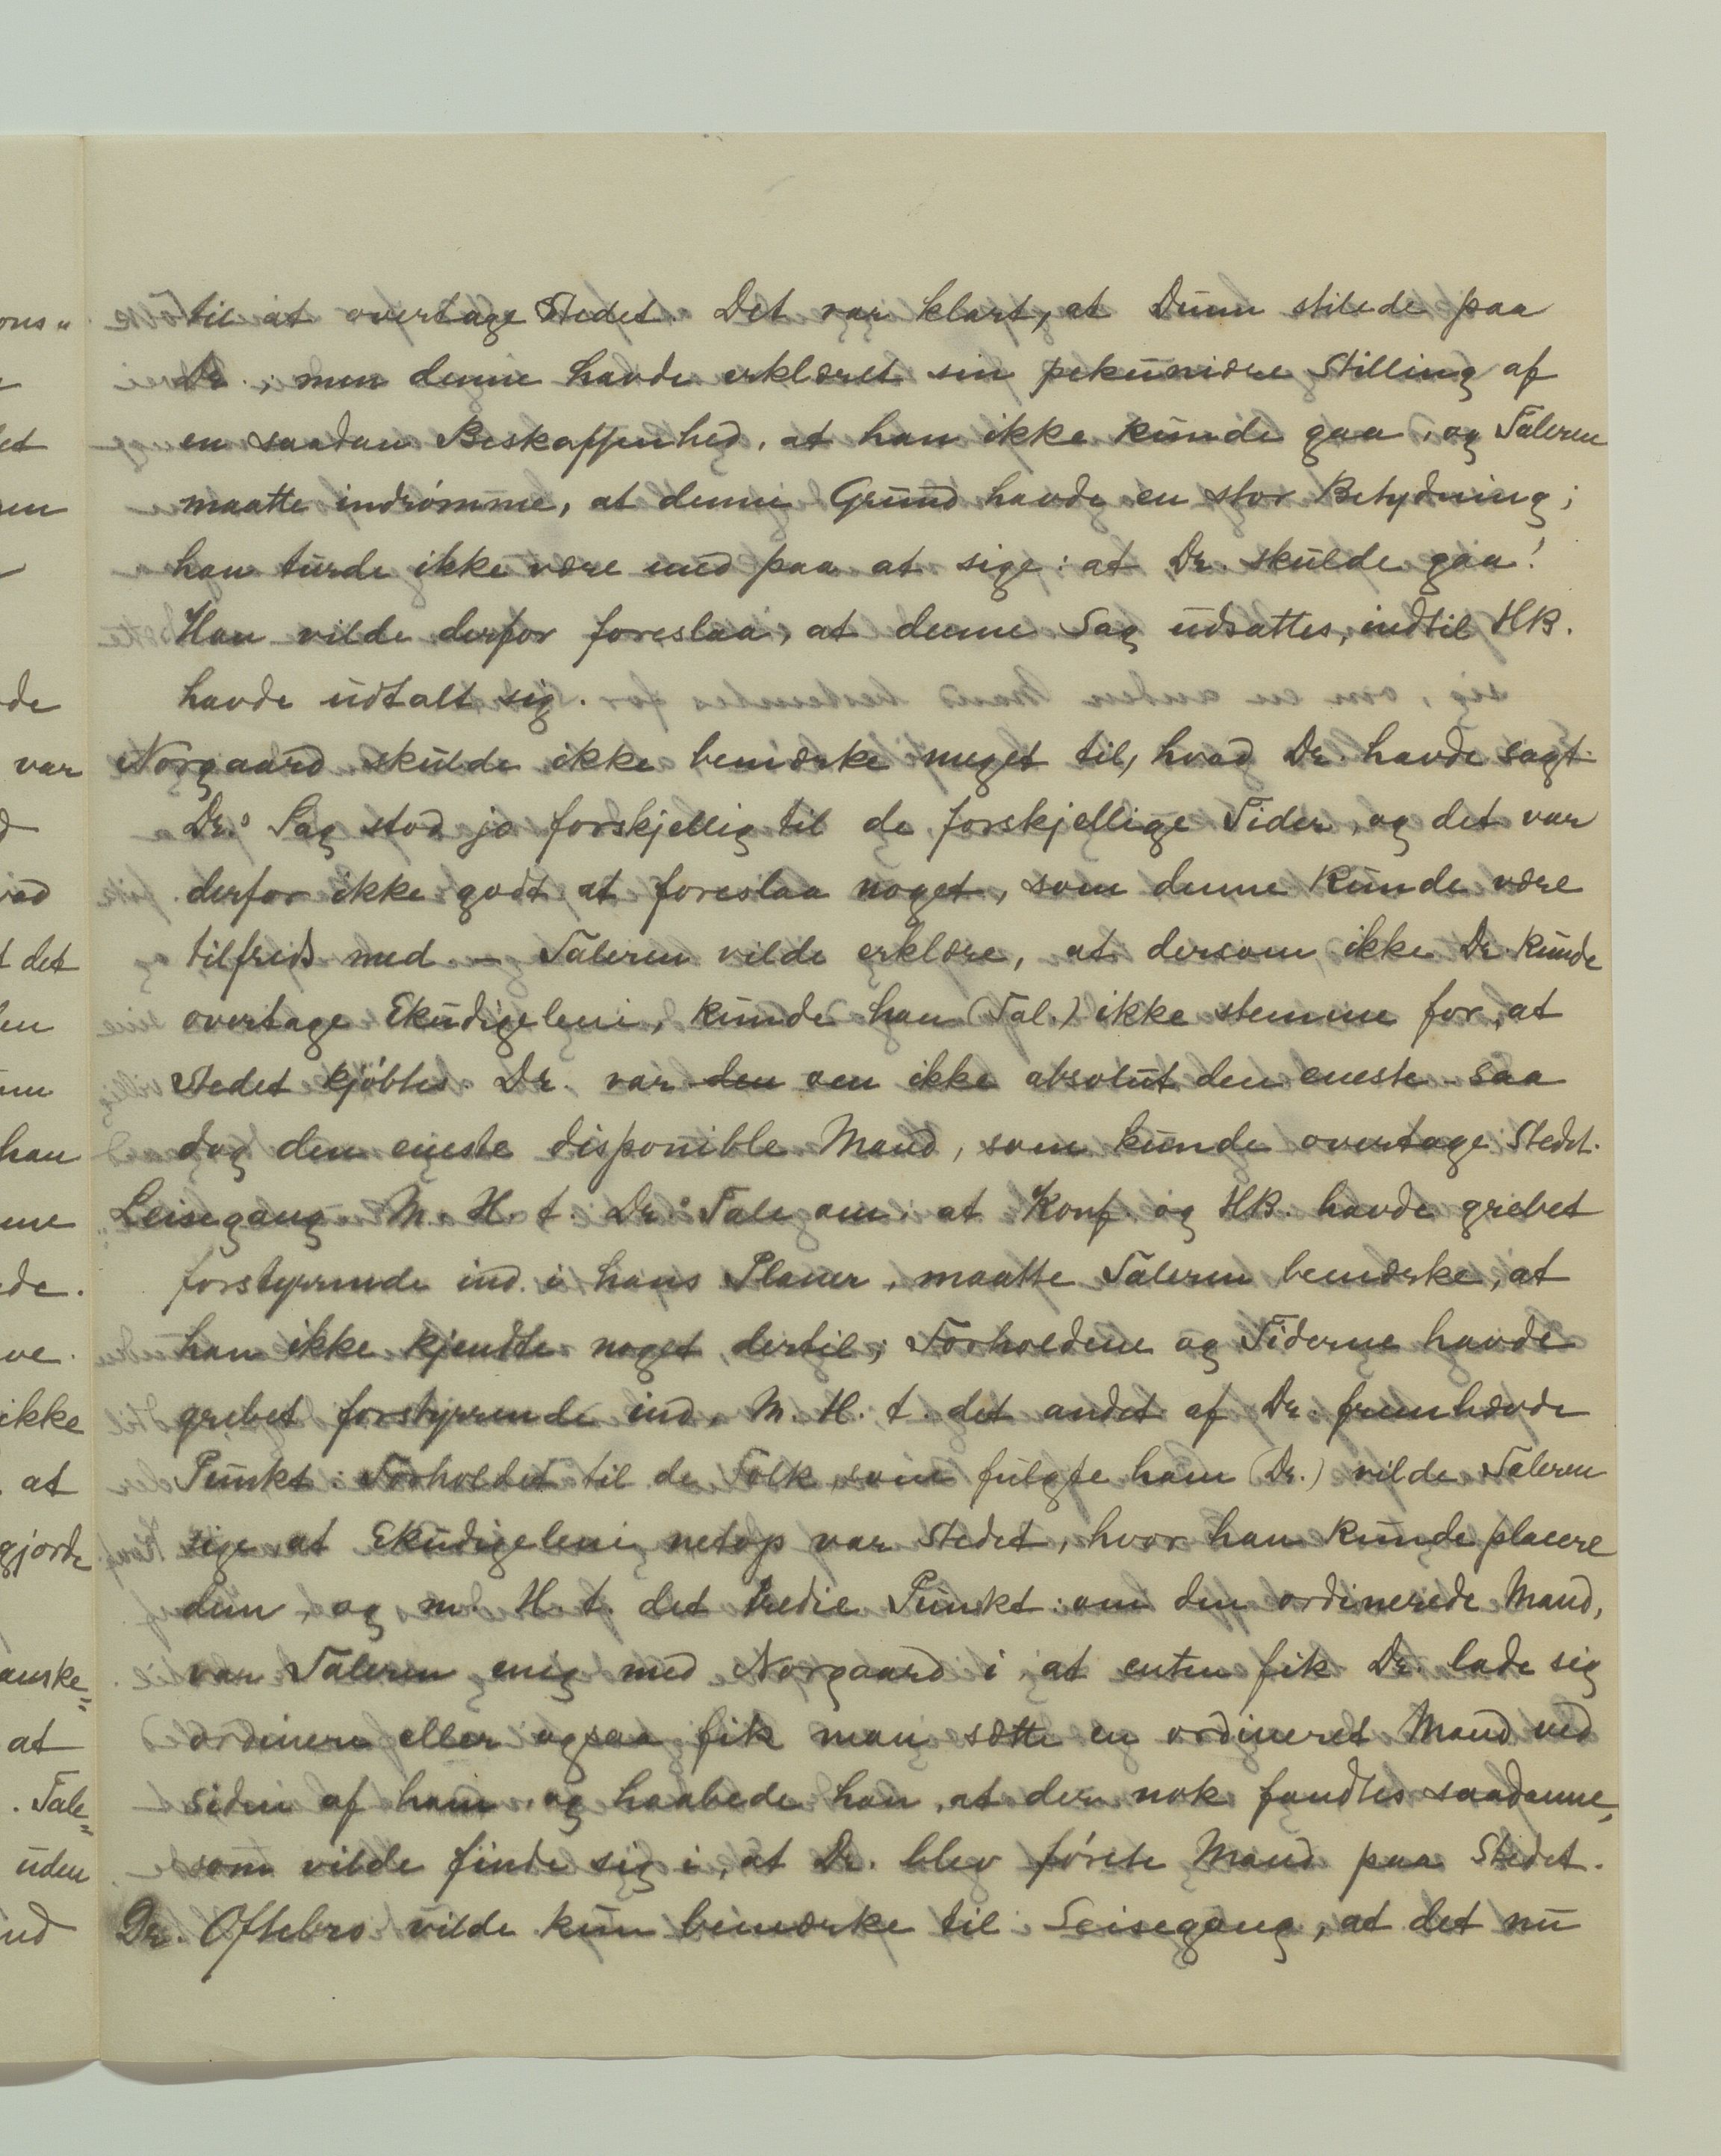 til at overtage Stedet. Det var klart, at Dunn stilede paa
Dr., men denne havde erklæret sin pekuniære Stilling af
en saadan Beskaffenhed, at han ikke kunde gaa, og Taleren
maatte indrømme, at denne Grund havde en stor Betydning;
han turde ikke være med paa at sige: at Dr. skulde gaa!
Han vilde derfor foreslaa, at denne Sag udsattes, indtil HB.
havde udtalt sig.
Norgaard skulde ikke bemærke meget til, hvad Dr. havde sagt.
Dr.s Sag stod jo forskjellig til de forskjellige Tider, og det var
derfor ikke godt at foreslaa noget, som denne kunde være
tilfreds med. – Taleren vilde erklære, at dersom ikke Dr. kunde
overtage Ekudigeleni, kunde han (Tal.) ikke stemme for, at
Stedet kjøbtes. Dr. var den om ikke absolut den eneste saa
dog den eneste disponible Mand, som kunde overtage Stedet.
Leisegang M. H. t. Dr.s Tale om, at Konf. og HB. havde grebet
forstyrrende ind i hans Planer, maatte Taleren bemærke, at
han ikke kjendte noget dertil; Forholdene og Tiderne havde
grebet forstyrrende ind. M. H. t. det andet af Dr. fremhævde
Punkt: Forholdet til de Folk, som fulgte ham (Dr.) vilde Taleren
sige, at Ekudigeleni netop var Stedet, hvor han kunde placere
dem, og m. H. t. det tredie Punkt: om den ordinerede Mand,
var Taleren enig med Norgaard i, at enten fik Dr. lade sig
ordinere eller ogsaa fik man sætte en ordineret Mand ved
Siden af ham, og haabede han, at der nok fandtes saadanne,
som vilde finde sig i, at Dr. blev første Mand paa Stedet.
Dr. Oftebro vilde kun bemærke til Leisegang, at det nu